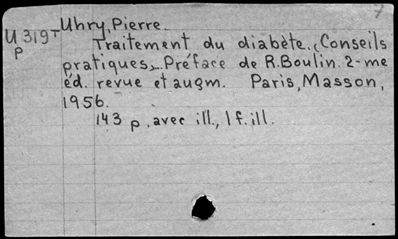 7
U 319T Uhry, Pierre.
p Traitement du diabète. (Conseils
pratiques). Préface de R. Boulin. 2-me
éd. revue et augm. Paris, Masson,
1956.
143 p. avec ill., 1 f. ill.